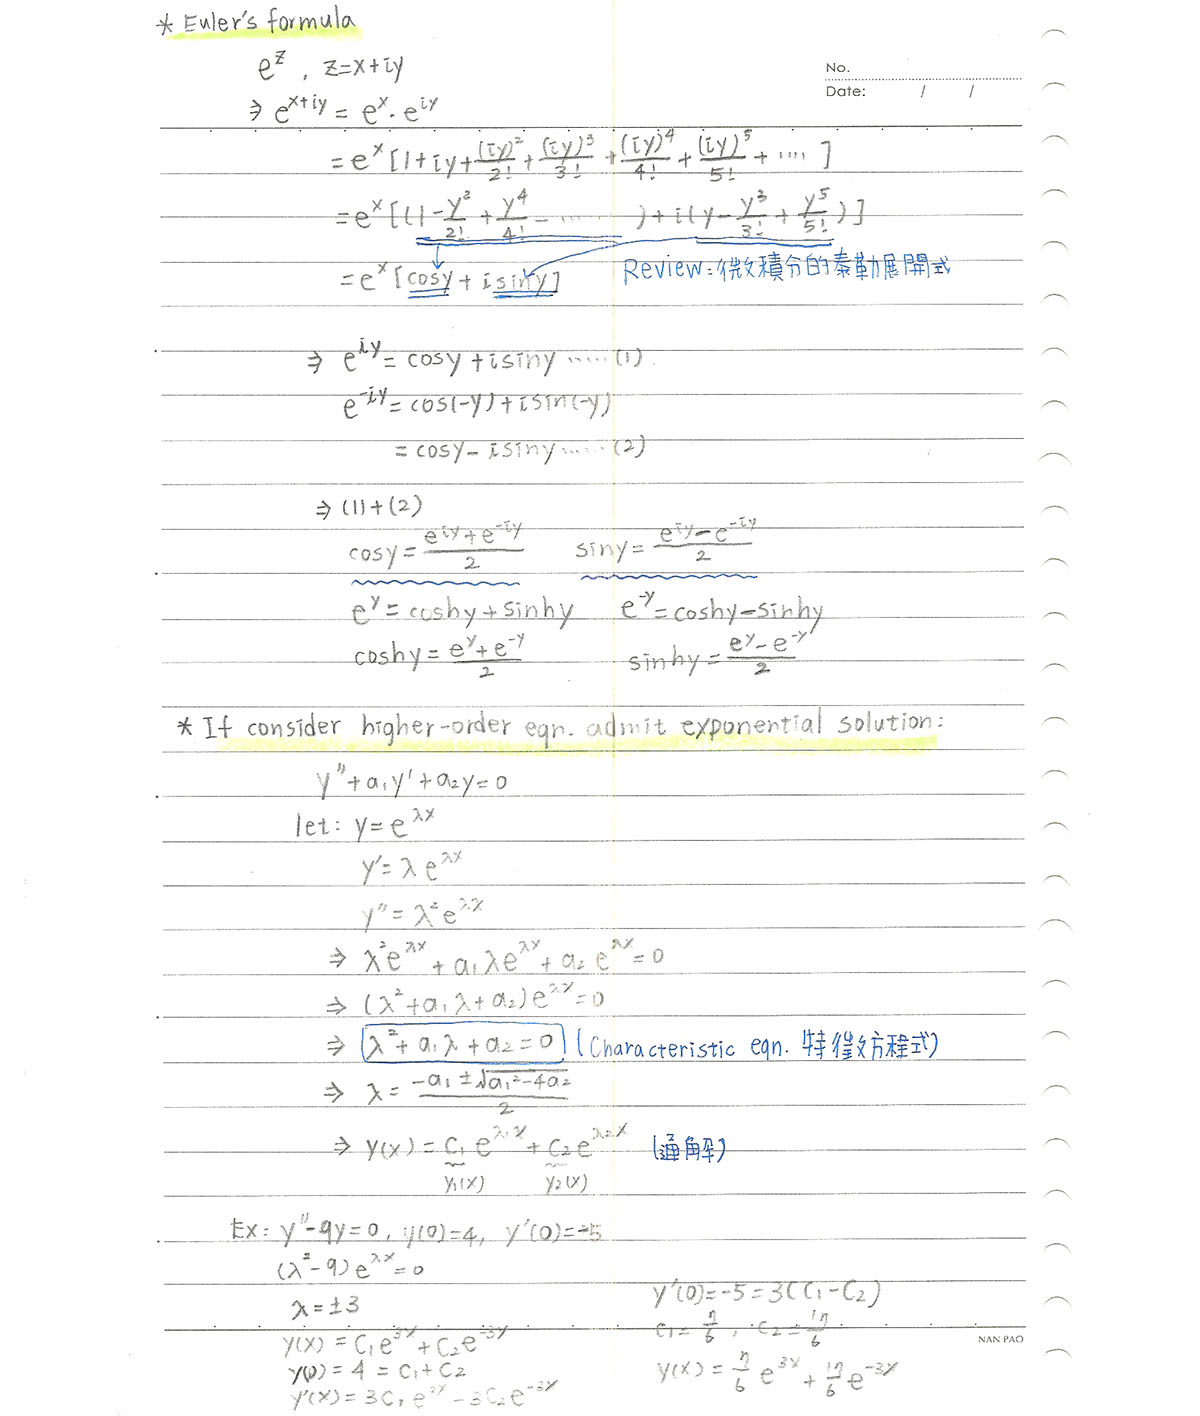 * Euler's formula
e^z , z=x+iy
No.
Date: / /
⇒ e^{x+iy} = e^x · e^{iy}
= e^x [1+iy+\frac{(iy)^2}{2!}+\frac{(iy)^3}{3!}+\frac{(iy)^4}{4!}+\frac{(iy)^5}{5!}+ .... ]
= e^x [(1-\frac{y^2}{2!}+\frac{y^4}{4!}- ........ )+i(y-\frac{y^3}{3!}+\frac{y^5}{5!})]
= e^x [cosy + isiny]
Review: 微積分的泰勒展開式
⇒ e^{iy} = cosy + isiny ...... (1)
e^{-iy} = cos(-y)+isin(-y)
= cosy - isiny ...... (2)
⇒ (1)+(2)
cosy = \frac{e^{iy}+e^{-iy}}{2} siny = \frac{e^{iy}-e^{-iy}}{2}
e^y = coshy + sinhy e^{-y} = coshy - sinhy
coshy = \frac{e^y+e^{-y}}{2} sinhy = \frac{e^y-e^{-y}}{2}
* If consider higher-order eqn. admit exponential solution:
y''+a_1y'+a_2y=0
let: y=e^{λx}
y'=λe^{λx}
y''=λ^2e^{λx}
⇒ λ^2e^{λx}+a_1λe^{λx}+a_2e^{λx}=0
⇒ (λ^2+a_1λ+a_2)e^{λx}=0
⇒ λ^2+a_1λ+a_2=0 (Characteristic eqn. 特徵方程式)
⇒ λ = \frac{-a_1±\sqrt{a_1^2-4a_2}}{2}
⇒ y(x) = C_1e^{λ_1x}+C_2e^{λ_2x} (通解)
y_1(x) y_2(x)
Ex: y''-9y=0, y(0)=4, y'(0)=-5
(λ^2-9)e^{λx}=0
λ=±3
y(x) = C_1e^{3x}+C_2e^{-3x}
y(0) = 4 = C_1+C_2
y'(x) = 3C_1e^{3x}-3C_2e^{-3x}
y'(0)=-5=3(C_1-C_2)
C_1=\frac{7}{6}, C_2=\frac{17}{6}
y(x)=\frac{7}{6}e^{3x}+\frac{17}{6}e^{-3x}
NAN PAO